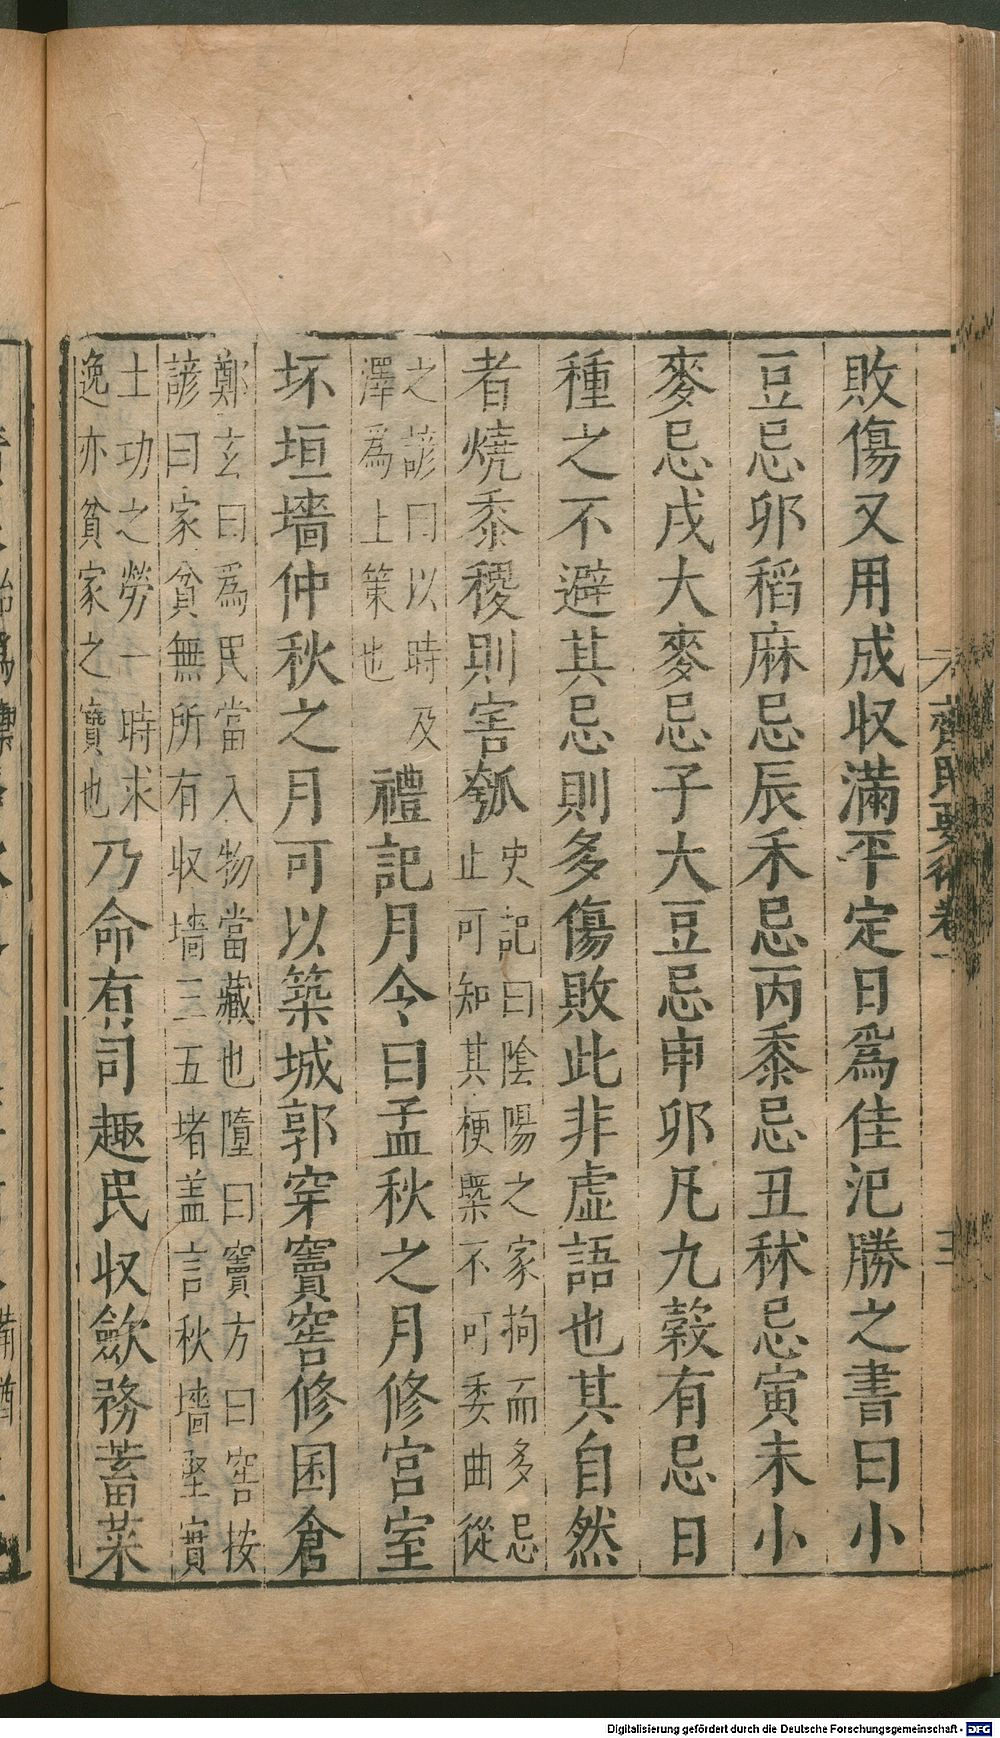 齊民要術卷一
敗傷又用成收滿平定日爲佳氾勝之書曰小
豆忌卯稻麻忌辰禾忌丙黍忌丑秫忌寅未小
麥忌戌大麥忌子大豆忌申卯凡九穀有忌日
種之不避其忌則多傷敗此非虛語也其自然
者燒黍稷則害瓠
史記曰陰陽之家拘而多忌
止可知其梗槩不可委曲從
之諺曰以時及
澤爲上策也
禮記月令曰孟秋之月修宮室
坏垣墻仲秋之月可以築城郭穿竇窖修囷倉
鄭玄曰爲民當入物當藏也墮曰竇方曰窖按
諺曰家貧無所有收墻三五堵盖言秋墻堅實
土功之勞一時求
逸亦貧家之寶也
乃命有司趣民收歛務蓄菜
Digitalisierung gefördert durch die Deutsche Forschungsgemeinschaft - DFG